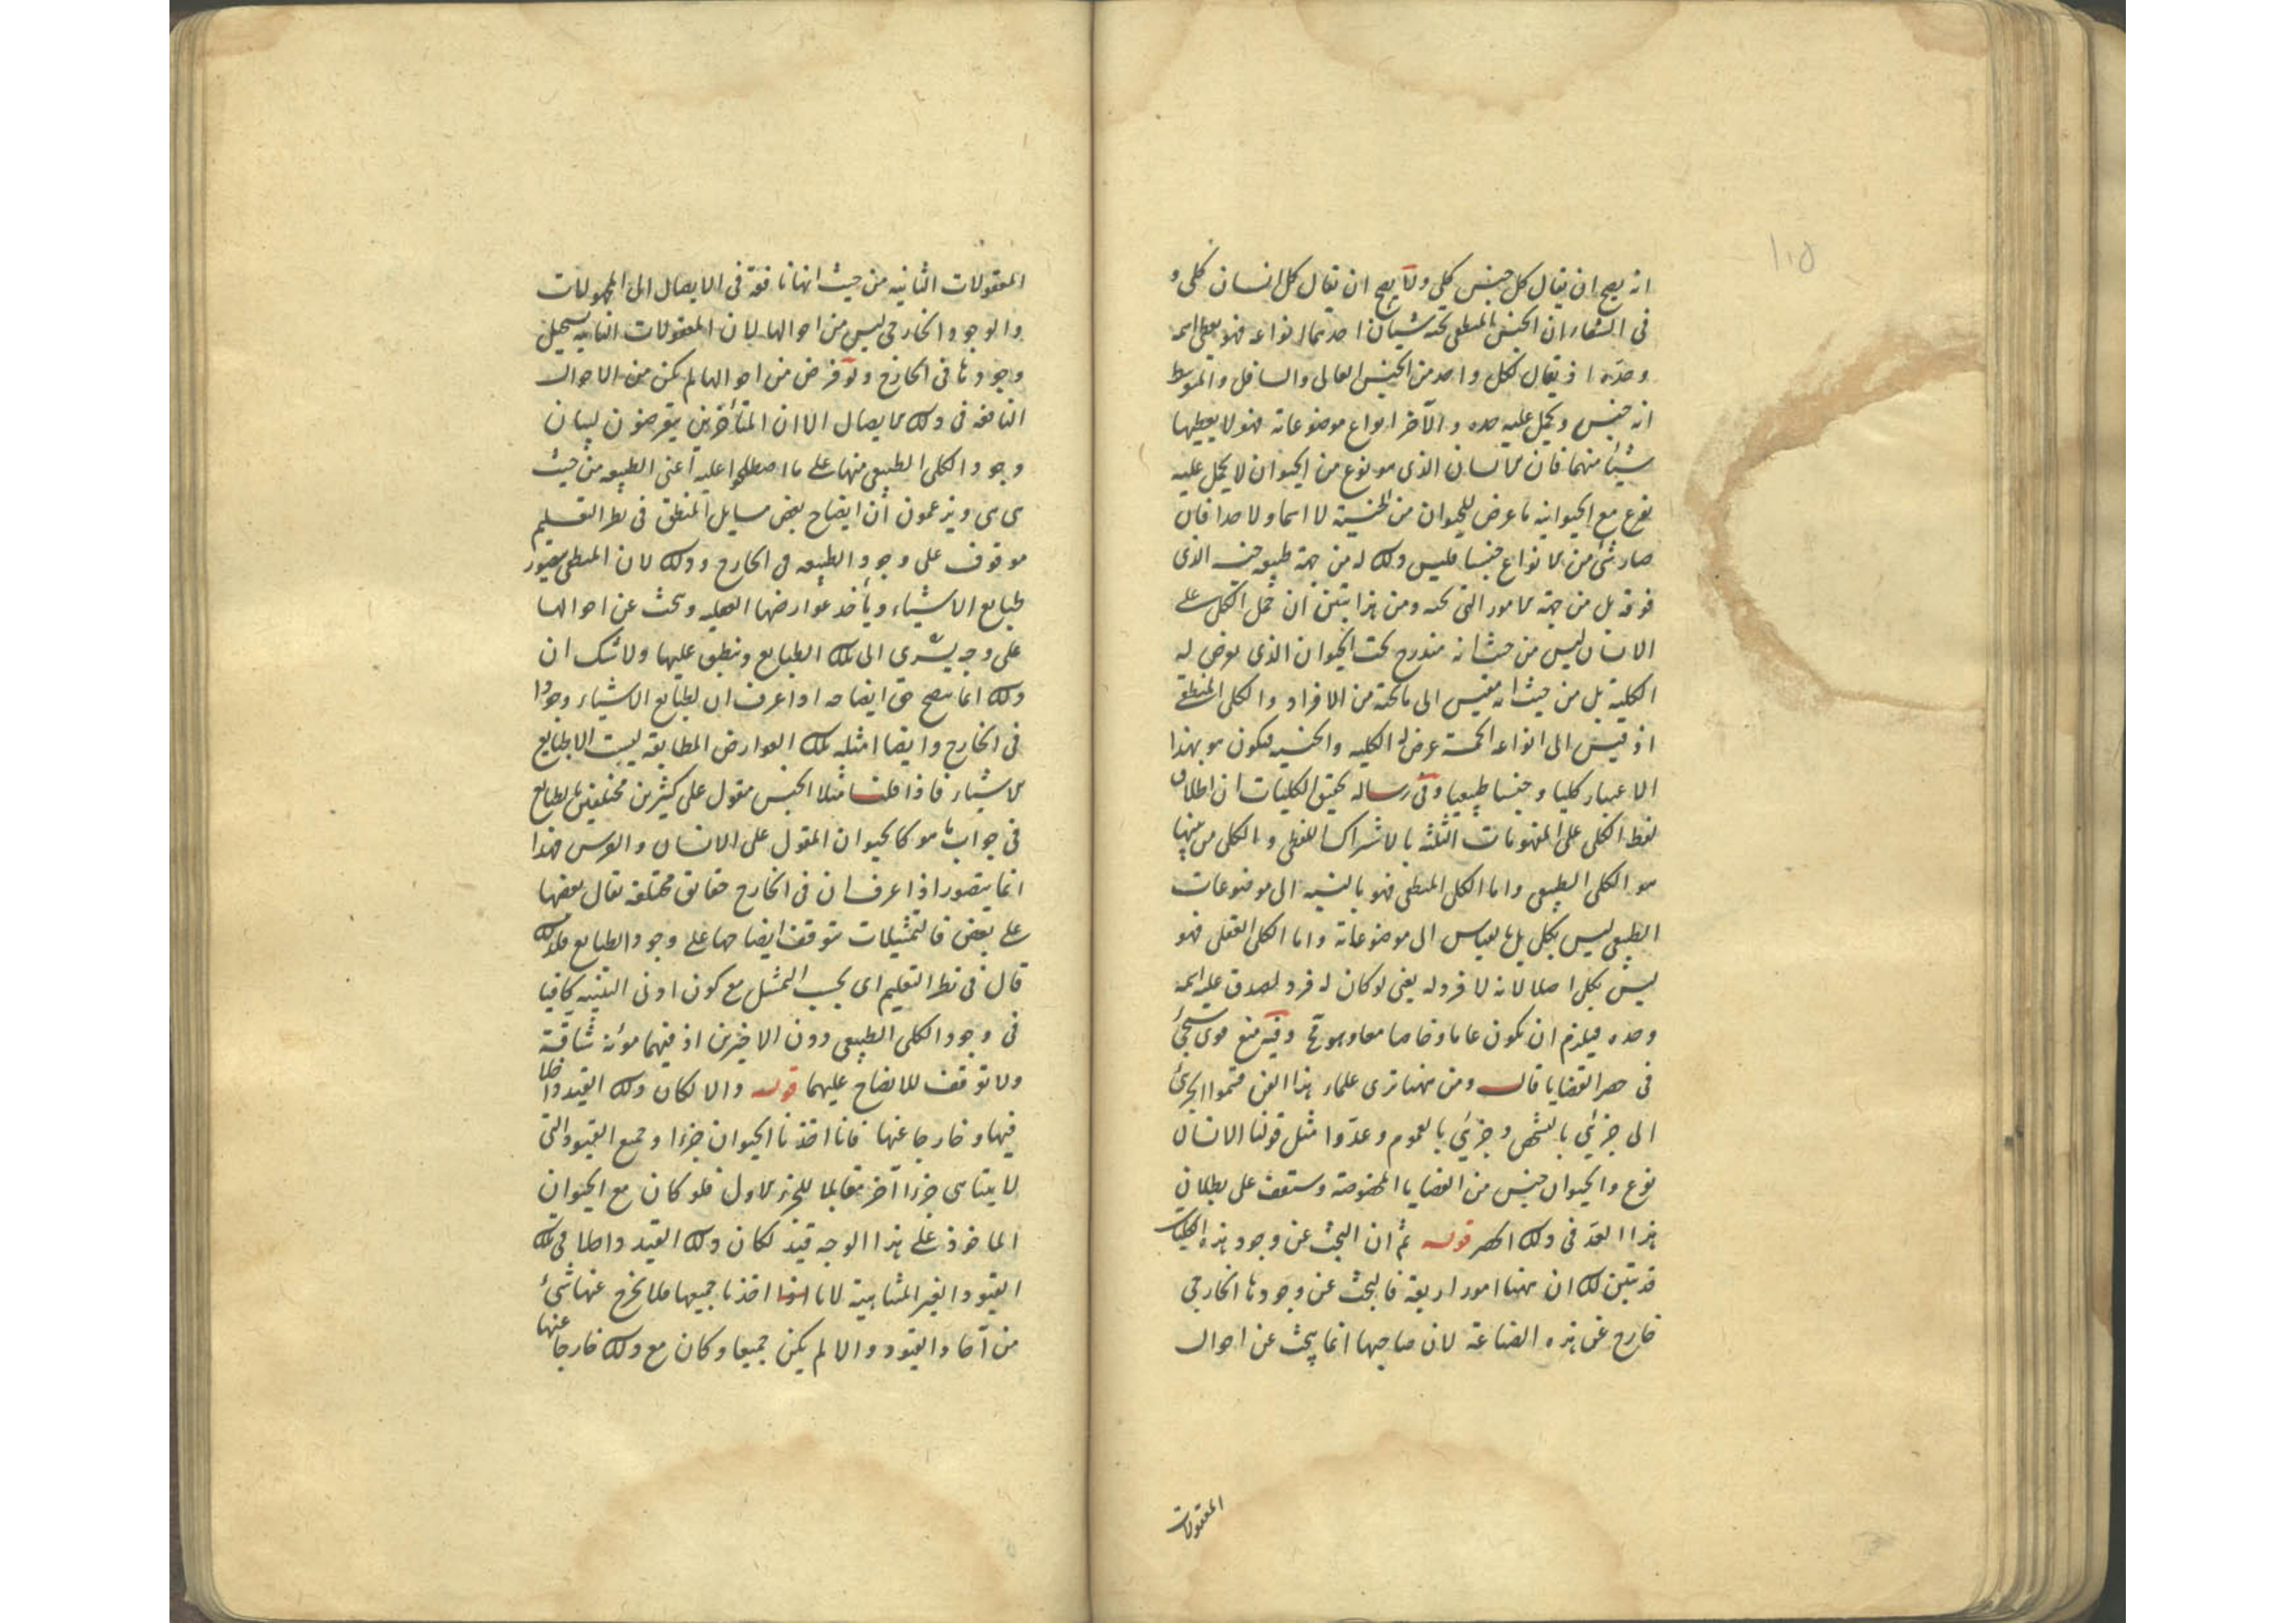 ١٠٥
انه يصح ان يقال كل جنس كلي ولا يصح ان يقال كل انسان كلي و
في الشفاء ان الجنس المنطقي تحته شيئان احدهما انواعه فهو يعطي اسمه
وحده اذ يقال لكل واحد من الجنس العالي والسافل والمتوسط
انه جنس ويحمل عليه حده والآخر انواع موضوعاته فهو لا يعطيها
شيئا منهما فان الانسان الذي هو نوع من الحيوان لا يحمل عليه
نوع مع الحيوانيه ما عرض للحيوان من الجنسية لا اسما ولا حدا فان
صار شئ من الانواع جنسا فليس ذلك له من جهة طبيعة جنسه الذي
فوقه بل من جهة الامور التي تحته ومن هذا يتبين ان حمل الكل على
الانسان ليس من حيث انه مندرج تحت الحيوان الذي يعرض له
الكلية بل من حيث انه مقيس الى ما تحته من الافراد والكلي المنطقي
اذ قيس الى انواعه الخمسة عرض له الكليه والجنسيه فيكون هو بهذا
الاعتبار كليا وجنسا طبيعيا وفي رساله تحقيق الكليات ان اطلاق
لفظ الكلي على المفهومات الثلثة بالاشتراك اللفظي والكلي من بينها
هو الكلي الطبيعي واما الكلي المنطقي فهو بالنسبه الى موضوعات
الطبيعي ليس بكلي بل بالقياس الى موضوعاته واما الكلي العقلي فهو
ليس بكلي اصلا لانه لا فرد له يعني لو كان له فرد لصدق عليه اسمه
وحده فيلزم ان يكون عاما وخاصا معا وهو مح وفيه منع قوي سيجئ
في حصر القضايا قال ومن ههنا ترى علماء هذا الفن قسموا الجزئي
الى جزئي بالشخص وجزئي بالعموم وعدوا مثل قولنا الانسان
نوع والحيوان جنس من القضايا المخصوصة وستقف على بطلان
هذا العد في ذلك الحصر قوله ثم ان البحث عن وجود هذه الكليات
قد تبين لك ان ههنا امورا اربعة فالبحث عن وجودها الخارجي
خارج عن هذه الصناعة لان صاحبها انما يبحث عن احوال
المعقولات
المعقولات الثانيه من حيث انها نافعة في الايصال الى المجهولات
والوجود الخارجي ليس من احوالها لان المعقولات الثانيه يستحيل
وجودها في الخارج ولو فرض من احوالها لم يكن من الاحوال
النافعه في ذلك الايصال الا ان المتأخرين يتعرضون لبيان
وجود الكلي الطبيعي منها على ما اصطلحوا عليه اعني الطبيعه من حيث
هي هي ويزعمون ان ايضاح بعض مسايل المنطق في نظر التعليم
موقوف على وجود الطبيعه في الخارج وذلك لان المنطقي يتصور
طبايع الاشياء ويأخذ عوارضها العقليه ويبحث عن احوالها
على وجه يسري الى تلك الطبايع وينطبق عليها ولا شك ان
ذلك انما يتضح حق ايضاحه اذا عرف ان لطبايع الاشياء وجودا
في الخارج وايضا امثله تلك العوارض المطابقة ليست الا طبايع
الاشياء فاذا قلنا مثلا الجنس مقول على كثيرين مختلفين بالطبايع
في جواب ما هو كالحيوان المقول على الانسان والفرس فهذا
انما يتصور اذا عرف ان في الخارج حقايق مختلفة يقال بعضها
على بعض فالتمثيلات يتوقف ايضاحها على وجود الطبايع فلذلك
قال في نظر التعليم اي بحسب التمثيل مع كون ادنى التنبيه كافيا
في وجود الكلي الطبيعي دون الاخيرين اذ فيهما مؤنة شاقة
ولا توقف للايضاح عليهما قوله والا لكان ذلك القيد داخلا
فيها وخارجا عنها فانا اخذنا الحيوان جزءا وجميع القيود التي
لا يتناهى جزءا آخر مقابلا للجزء الاول فلو كان مع الحيوان
الماخوذ على هذا الوجه قيد لكان ذلك القيد داخلا في تلك
القيود الغير المتناهية لانا اخذنا جميعها فلا يخرج عنها شئ
من آحاد القيود والا لم يكن جميعا وكان مع ذلك خارجا عنها